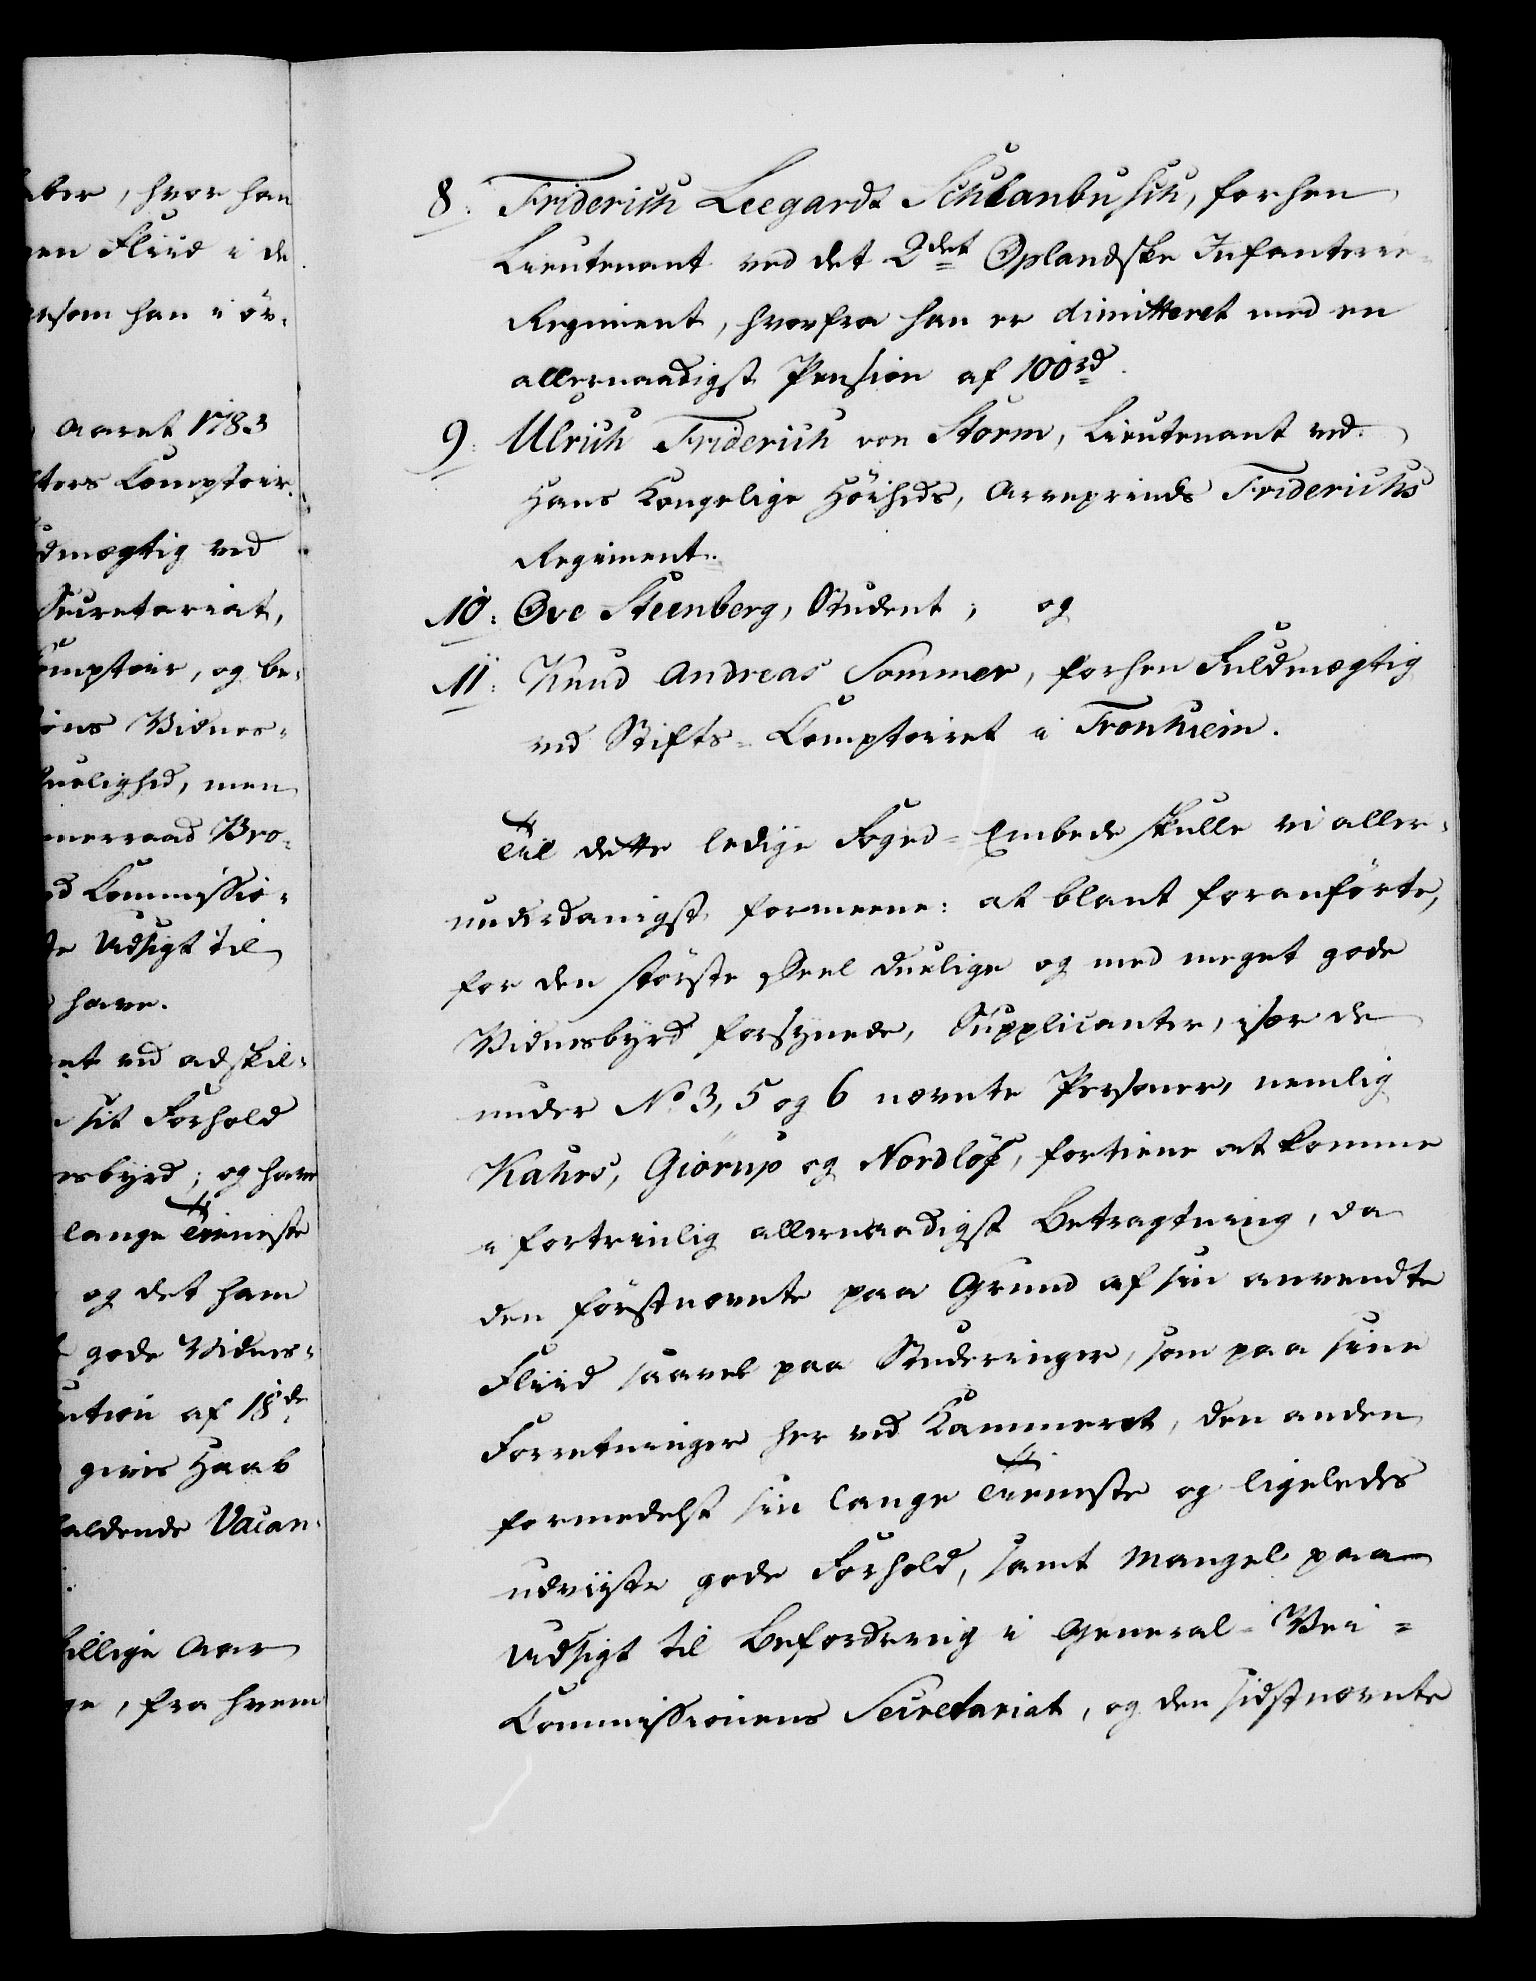 aber, hvor han
gen Fliid i de
ersom han i öv-
Aaret 1783
ctors Comptoir
uldmægtig ved
Secretariat,
omptoir, og be-
ions Vidnes-
uelighed, men
merraad Bro-
d Commissio-
te Udsigt til
have.
et ved adskil-
sit Forhold
esbyrd; og have
lange Tieneste
og det ham
gode Vidnes-
ution af 18de
givne Haab
faldende Vacan-
killige Aar
ge, fra hvem
8. Friderich Leegardt Schlanbusch, forhen
Lieutenant ved det 2det Oplandske Infanterie-
Regiment, hvorfra han er dimitteret med en
allernaadigst Pension af 100rd.
9. Ulrich Friderich von Storm, Lieutenant ved
Hans Kongelige Höiheds, Arveprinds Friderichs
Regiment.
10. Ove Steenberg, Student; og
11. Knud Andreas Sommer, forhen Fuldmægtig
ved Stifts-Comptoiret i Tronhiem.
Til dette ledige Foged-Embede skulle vi aller-
underdanigst formeene: at blant foranförte,
for den störste Deel duelige og med meget gode
Vidnesbyrd forsynede, Supplicanter, især de
under No 3, 5 og 6 nævnte Personer, nemlig
Kahrs, Giörup og Nordlöf, fortiene at komme
i fortrinlig allernaadigst Betragtning, da
den förstnævnte paa Grund af sin anvendte
Fliid saavel paa Studeringer, som paa sine
Forretninger her ved Kammeret, den anden
formedelst sin lange Tieneste og ligeledes
udviiste gode Forhold, samt Mangel paa
Udsigt til Befordring i General-Vei-
Commissionens Secretariat, og den sidstnævnte